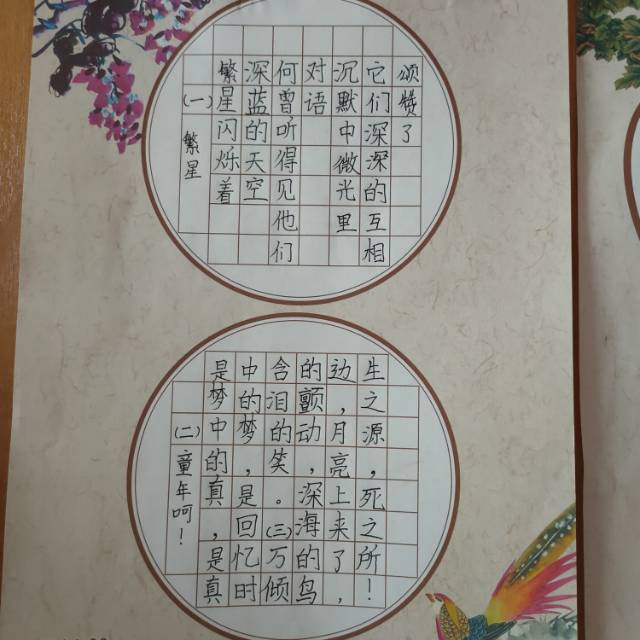 (一)繁星
繁星闪烁着
深蓝的天空
何曾听得见他们
对语
沉默中微光里
它们深深的互相
颂赞了
(二)童年呵!
是梦中的真,是真
中的梦,是回忆时
含泪的笑。(三)万倾
的颤动,深海的鸟
边,月亮上来了,
生之源,死之所!